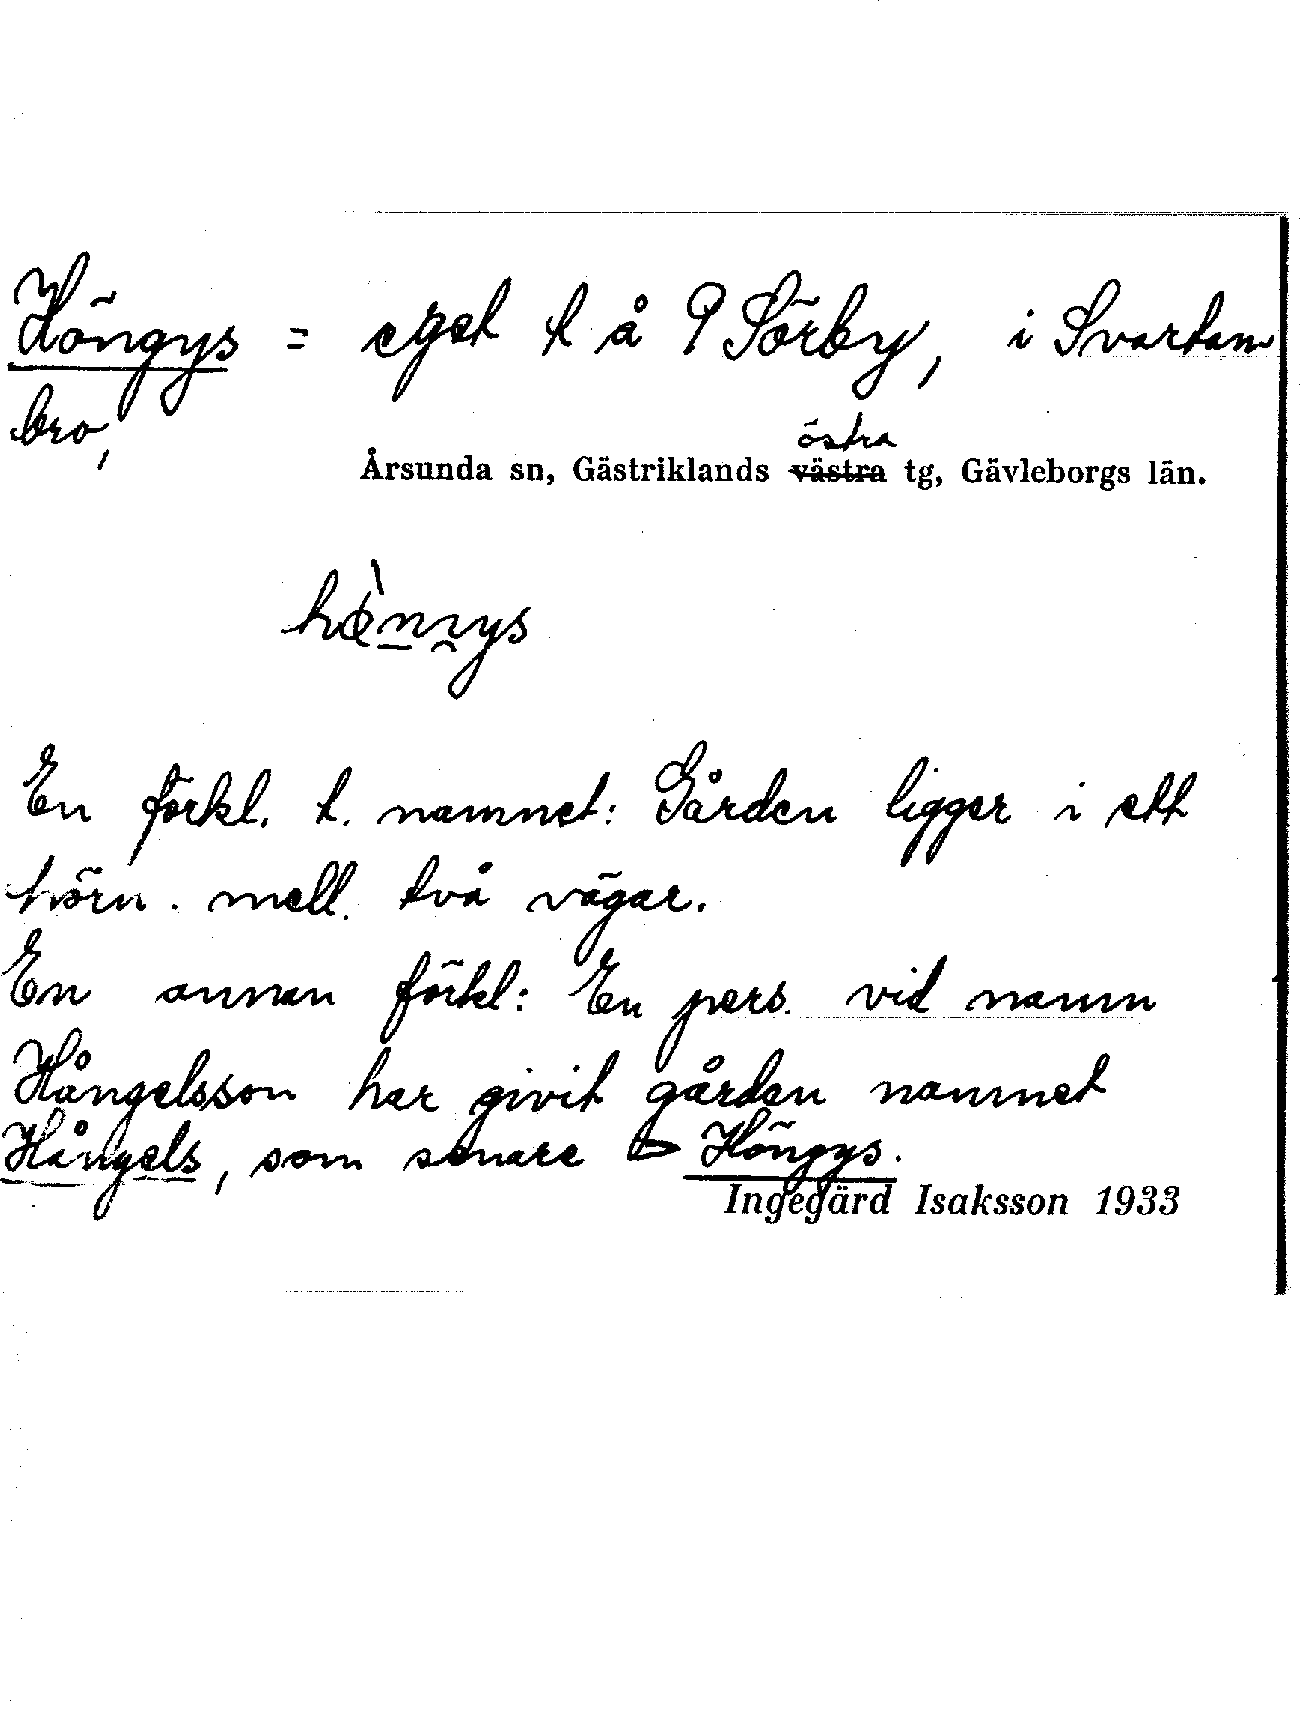 Höngys = eget t å P Sörby, i Svartan
bro,
östra
Årsunda sn, Gästriklands västra tg, Gävleborgs län.
En förkl. t. namnet: Gården ligger i ett
hörn. mell. två vägar.
En annan förkl: En pers. vid namn
Hångelsson har givit gården namnet
Hångels, som senare Höngys.
Ingegärd Isaksson 1933